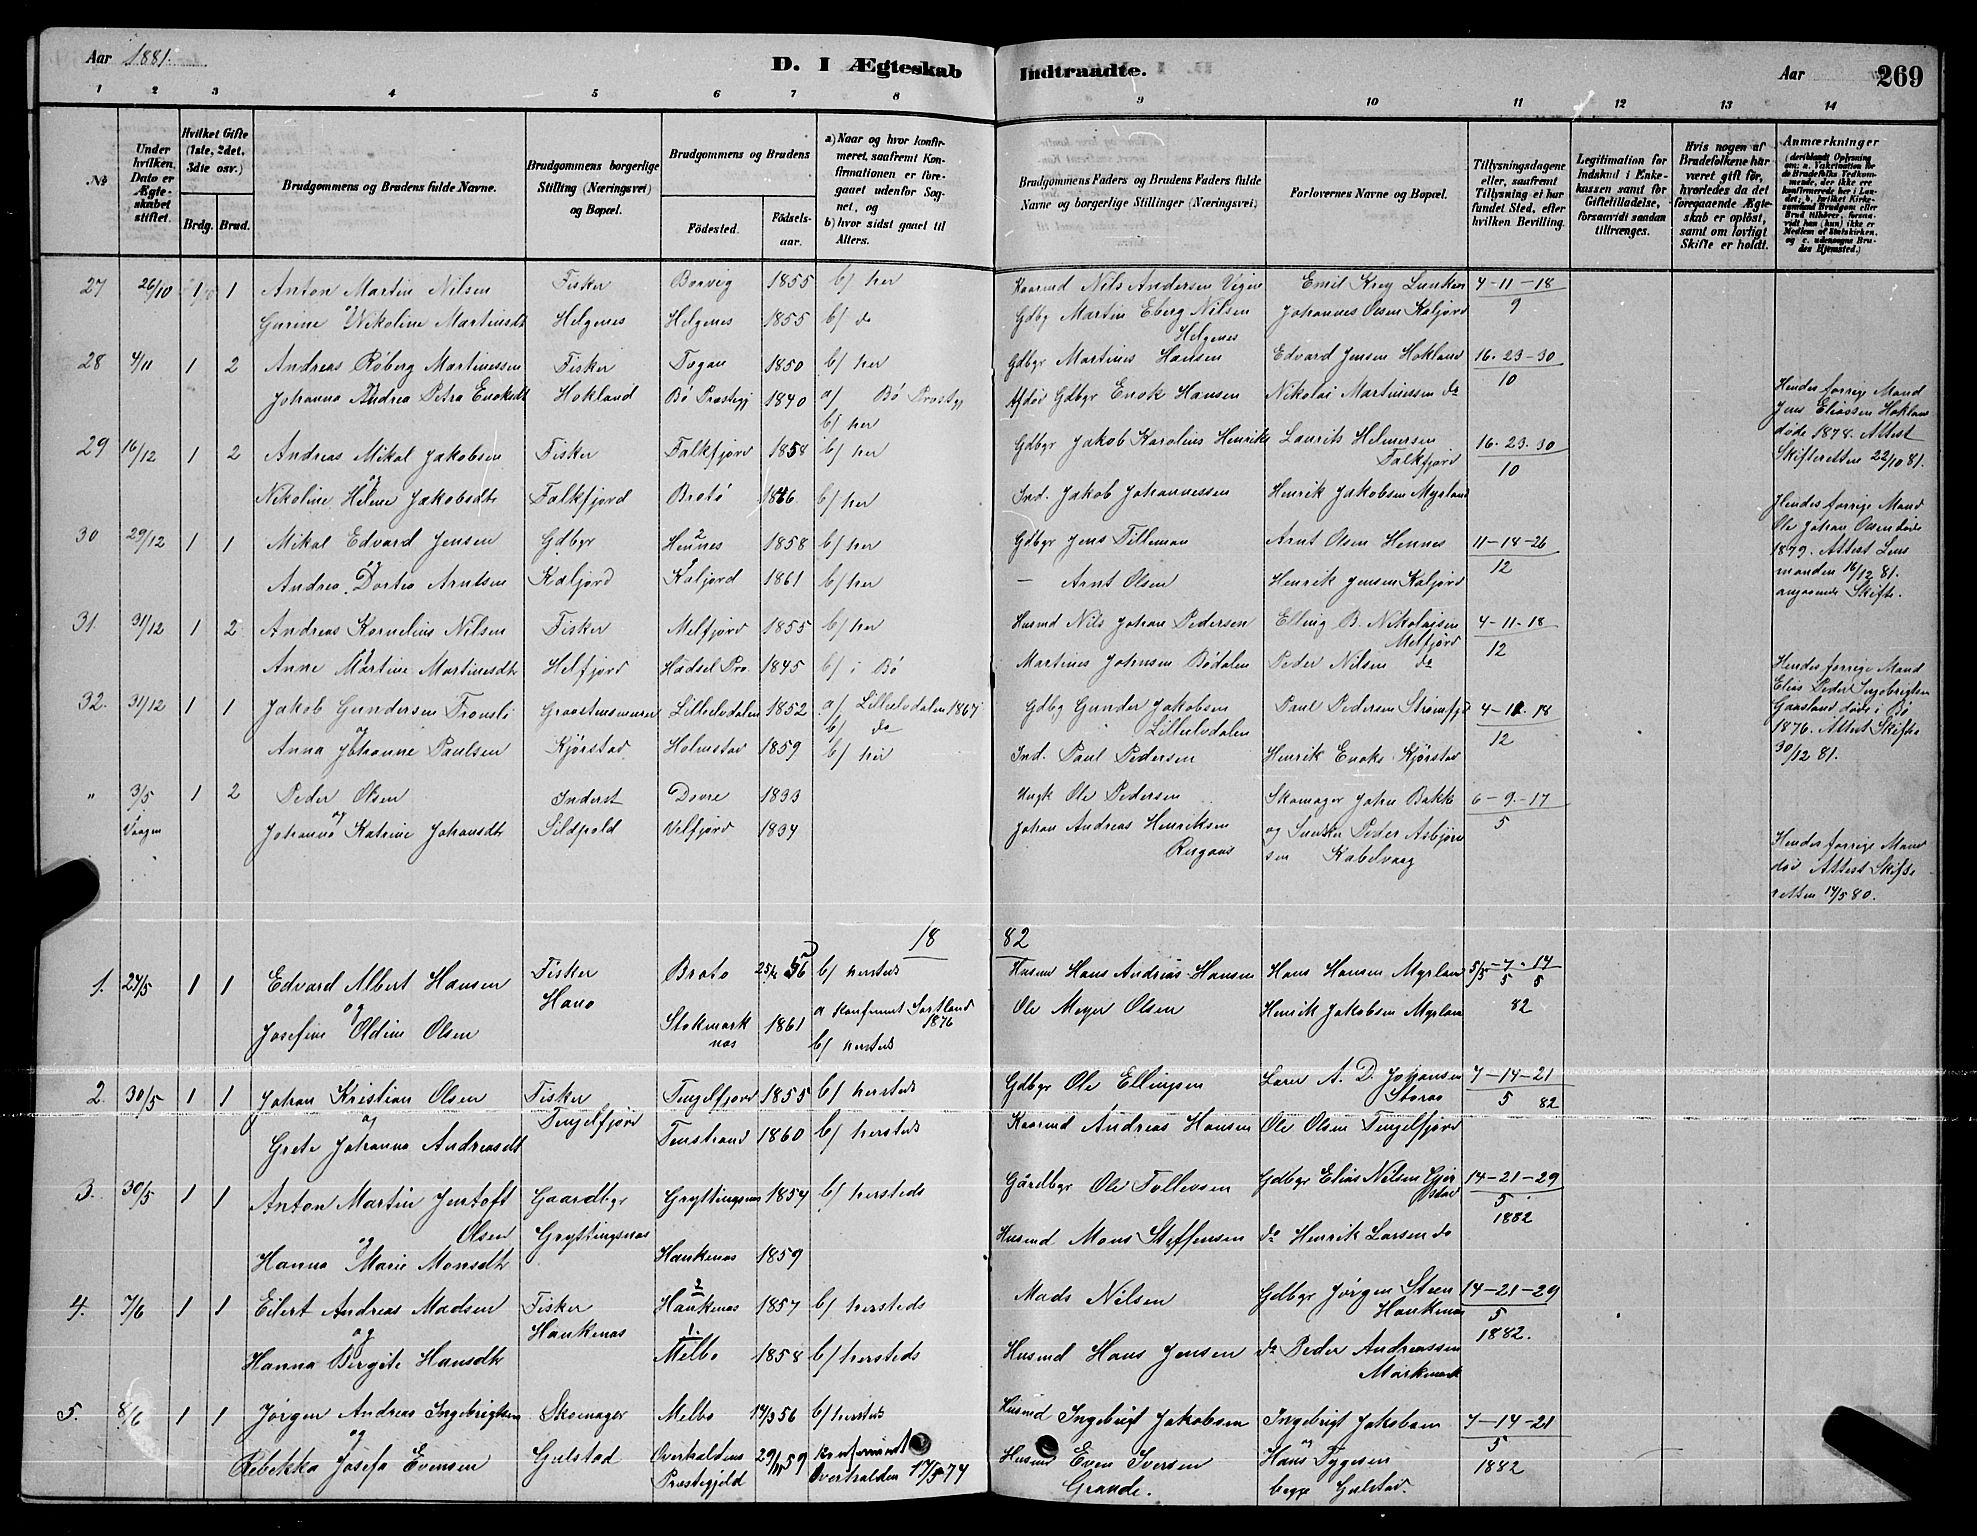 Aar 1881.
D. I Ægteskab Indtraadte.
Aar 269
1 2 3 4 5 6 7 8 9 10 11 12 13 14
№
Under hvilken Dato er Ægteskabet stiftet.
Hvilket Gifte (1ste, 2det, 3die osv.)
Brdg. Brud.
Brudgommens og Brudens fulde Navne.
Brudgommens borgerlige Stilling (Næringsvei) og Bopæl.
Brudgommens og Brudens
Fødested. Fødselsaar.
a) Naar og hvor konfirmeret, saafremt Konfirmationen er foregaaet udenfor Sognet, og
b) hvor sidst gaaet til Alters.
Brudgommens Faders og Brudens Faders fulde Navne og borgerlige Stillinger (Næringsvei)
Forlovernes Navne og Bopæl.
Tillysningsdagene eller, saafremt Tillysning ei har fundet Sted, efter hvilken Bevilling.
Legitimation for Indskud i Enkekassen samt for Giftetilladelse, forsaavidt saadan tiltrænges.
Hvis nogen af Brudefolkene har været gift før, hvorledes da det foregaaende Ægteskab er opløst, samt om lovligt Skifte er holdt.
Anmærkninger
27 26/10 1 1 Anton Martin Nilsen Fisker Borvig 1855 b/ her Kaarmd Nils Andersen Emil Krey 4-11-18
Gurine Nikoline Martinsdtr Helgenes Helgenes 1855 b/ do Gdbg Martin Eberg Nilsen Johannes Olsen Kaljord 9
Helgenes
28 4/11 1 2 Andreas Røberg Martinussen Fisker 1850 b/ her Gdbgr Martines Hansen Edvard Jensen Hokland 16-23-30
Johanna Andrea Petra Enoksdtr Hokland Bø Præstegj 1840 a/ Bø Præstgj Afdød Gdbgr Enok Hansen Nikolai Martinussen do 10
b/ her
Hendes forrige Mand Jens Eliassen Hokland døde 1878. Attest Skifteretten 22/10 81.
29 16/12 1 2 Andreas Mikal Jakobsen Fisker Falkfjord 1858 b/ her Gdbgr Jakob Karolius Henriks Laurits Helmersen 16-23-30
Falkfjord 10
og
Nikoline Helene Jakobsdtr Falkfjord Brotø 1846 b/ her Ind. Jakob Johannessen Henrik Jakobsen Myrland
Hendes forrige Mand Ole Johan Olsen døde 1879. Attest Lensmanden 16/12 81. angaaende Skifte.
30 29/12 1 1 Mikal Edvard Jensen Gdbgr Hennes 1858 b/ her Gdbgr Jens Tilleman Arnt Olsen Hennes 11-18-26
Andrea Dortea Arntsen Kaljord Kaljord 1861 b/ her — Arnt Olsen Henrik Jensen Kaljord 12
31. 31/12 1 2 Andreas Kornelius Nilsen Fisker Melfjord 1855 b/ her Husmd Nils Johan Pedersen Elling B. Nikolaisen 4-11-18
Melfjord 12
Anne Martine Martinusdtr Melfjord Hadsel Præ 1845 b/ i Bø Martines Johnsen Bødalen Peder Nilsen do
Hendes forrige Mand Elias Peder Ingebrigtsen Gaasland døde i Bø 1876. Attest Skifte 30/12 81.
32. 31/12 1 1 Jakob Gundersen Tronsli Graastensmurer Lilleelvdalen 1852 a/ Lilleelvdalen 1867 Gdbg Gunder Jakobsen Paul Pedersen 4-11-18
b/ do Lilleelvdalen 12
og
Anna Johanne Paulsen Kjørstad Holmstad 1859 b/ her Ind. Paul Pedersen Henrik Enoks Kjørstad
" 3/5 1 2 Peder Olsen Inderst Dovre 1833 Ungk Ole Pedersen Skomager Johan Bakke 6-9-17
i Vaagen og 5
Johanna Katrine Johansdtr Sildpold Velfjord 1834 Johan Andreas Henriksen og Snekker Peder Asbjørnsen Kabelvaag
Hendes forrige Mand død Attest Skifteretten 14/5 80.
1882
1. 24/5 1 1 Edvard Albert Hansen Fisker Brotø 25/2 56 b/ hersteds Husmd Hans Andreas Hansen Hans Hansen Myrland 5/5-7-14
og 5 5
Josefine Oldine Olsen Stokmarknæs 1861 a Konfirmert Sortland 1876 Ole Meyer Olsen Henrik Jakobsen Myrland 82
b/ hersteds
2. 30/5 1 1 Johan Kristian Olsen Fisker Tengelfjord 1855 b/ hersteds Gdbgr Ole Ellingsen Lærer A. D. Johansen 7-14-21
og Tengelfjord 5 82
Grete Johanna Andreasdtr 1860 b/ hersteds Kaarmd Andreas Hansen Ole Olsen Tengelfjord
3. 30/5 1 1 Anton Martin Jentoft Gaardbgr Gryttingsnæs 1854 b/ hersteds Gårdbgr Ole Tollevsen Gdbgr Elias Nilsen 14-21-29
og Olsen Gryttingsnæs 5
1882
Hanna Marie Monsdtr Haukenæs 1859 Husmd Mons Steffensen do Henrik Larsen do
4. 7/6 1 1 Eilert Andreas Madsen Fisker Haukenæs 1857 b/ hersteds Mads Nilsen Gdbgr Jørgen Steen 14-21-29
og Haukenæs Haukenæs 5
1882.
Hanna Birgite Hansdtr Melbo 1858 b/ hersteds Husmd Hans Jensen do Peder Andreassen
5. 8/6 1 1 Jørgen Andreas Ingebrigtsen Skomager Melbo 14/3 56 b/ hersteds Husmd Ingebrigt Jakobsen Ingebrigt Jakobsen 7-14-21
og og 5
Rebekka Josefa Evensen Gulstad Overhaldens Præstegjeld 29/11 59 Konfirmeret Overhalden 17/5 74 Husmd Even Iversen Grande. Hans Tygesen begge Gulstad. 1882